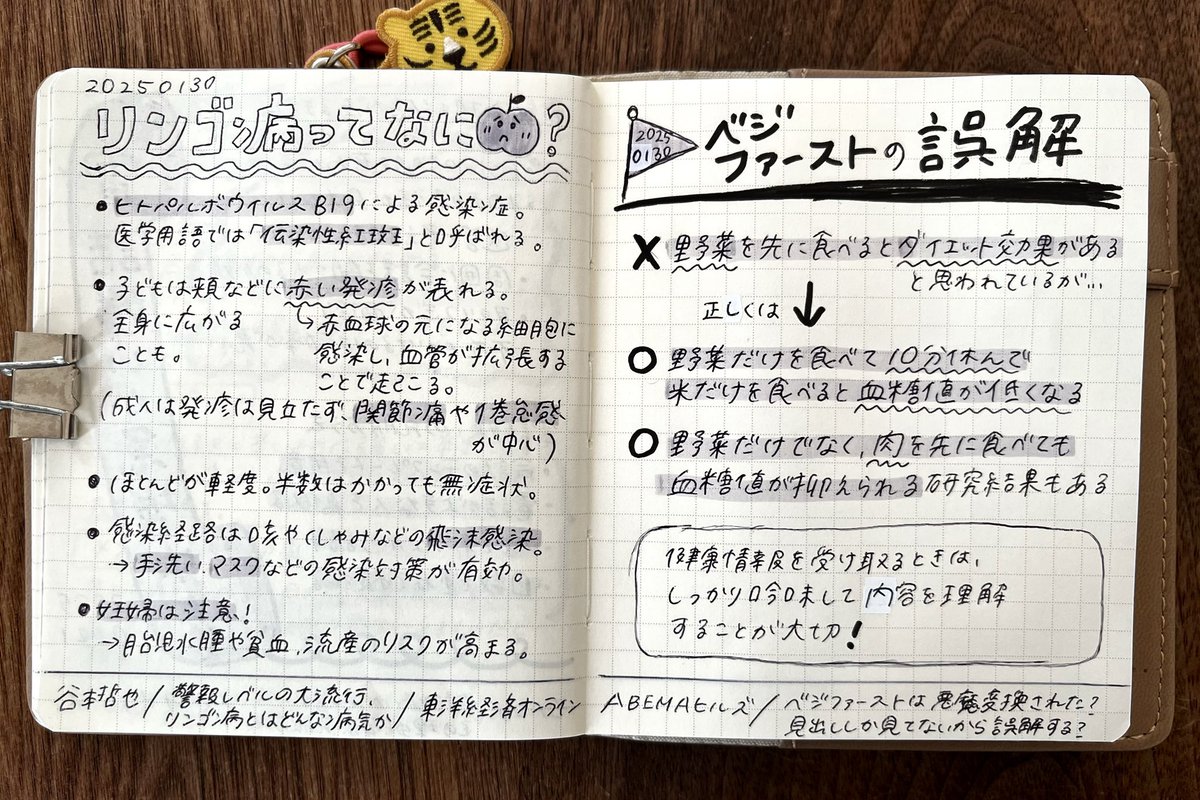 20250130
リンゴ病ってなに?
・ヒトパルボウイルスB19による感染症。
医学用語では「伝染性紅斑」と呼ばれる。
・子どもは頬などに赤い発疹が表れる。
全身に広がる
ことも。
↳赤血球の元になる細胞に
感染し、血管が拡張する
ことで起こる。
(成人は発疹は見立たず、関節痛や倦怠感
が中心)
・ほとんどが軽度。半数はかかっても無症状。
・感染経路は咳やくしゃみなどの飛沫感染。
→手洗い、マスクなどの感染対策が有効。
・妊婦は注意!
→胎児水腫や貧血、流産のリスクが高まる。
谷本哲也/警報レベルの大流行、
リンゴ病とはどんな病気か/東洋経済オンライン
2025
0130
ベジ
ファーストの誤解
X 野菜を先に食べるとダイエット効果がある
と思われているが…
正しくは↓
○ 野菜だけを食べて10分休んで
米だけを食べると血糖値が低くなる
○ 野菜だけでなく、肉を先に食べても
血糖値が抑えられる研究結果もある
健康情報を受け取るときは、
しっかり吟味して内容を理解
することが大切!
ABEMAヒルズ/ベジファーストは悪魔変換された?
見出ししか見てないから誤解する?